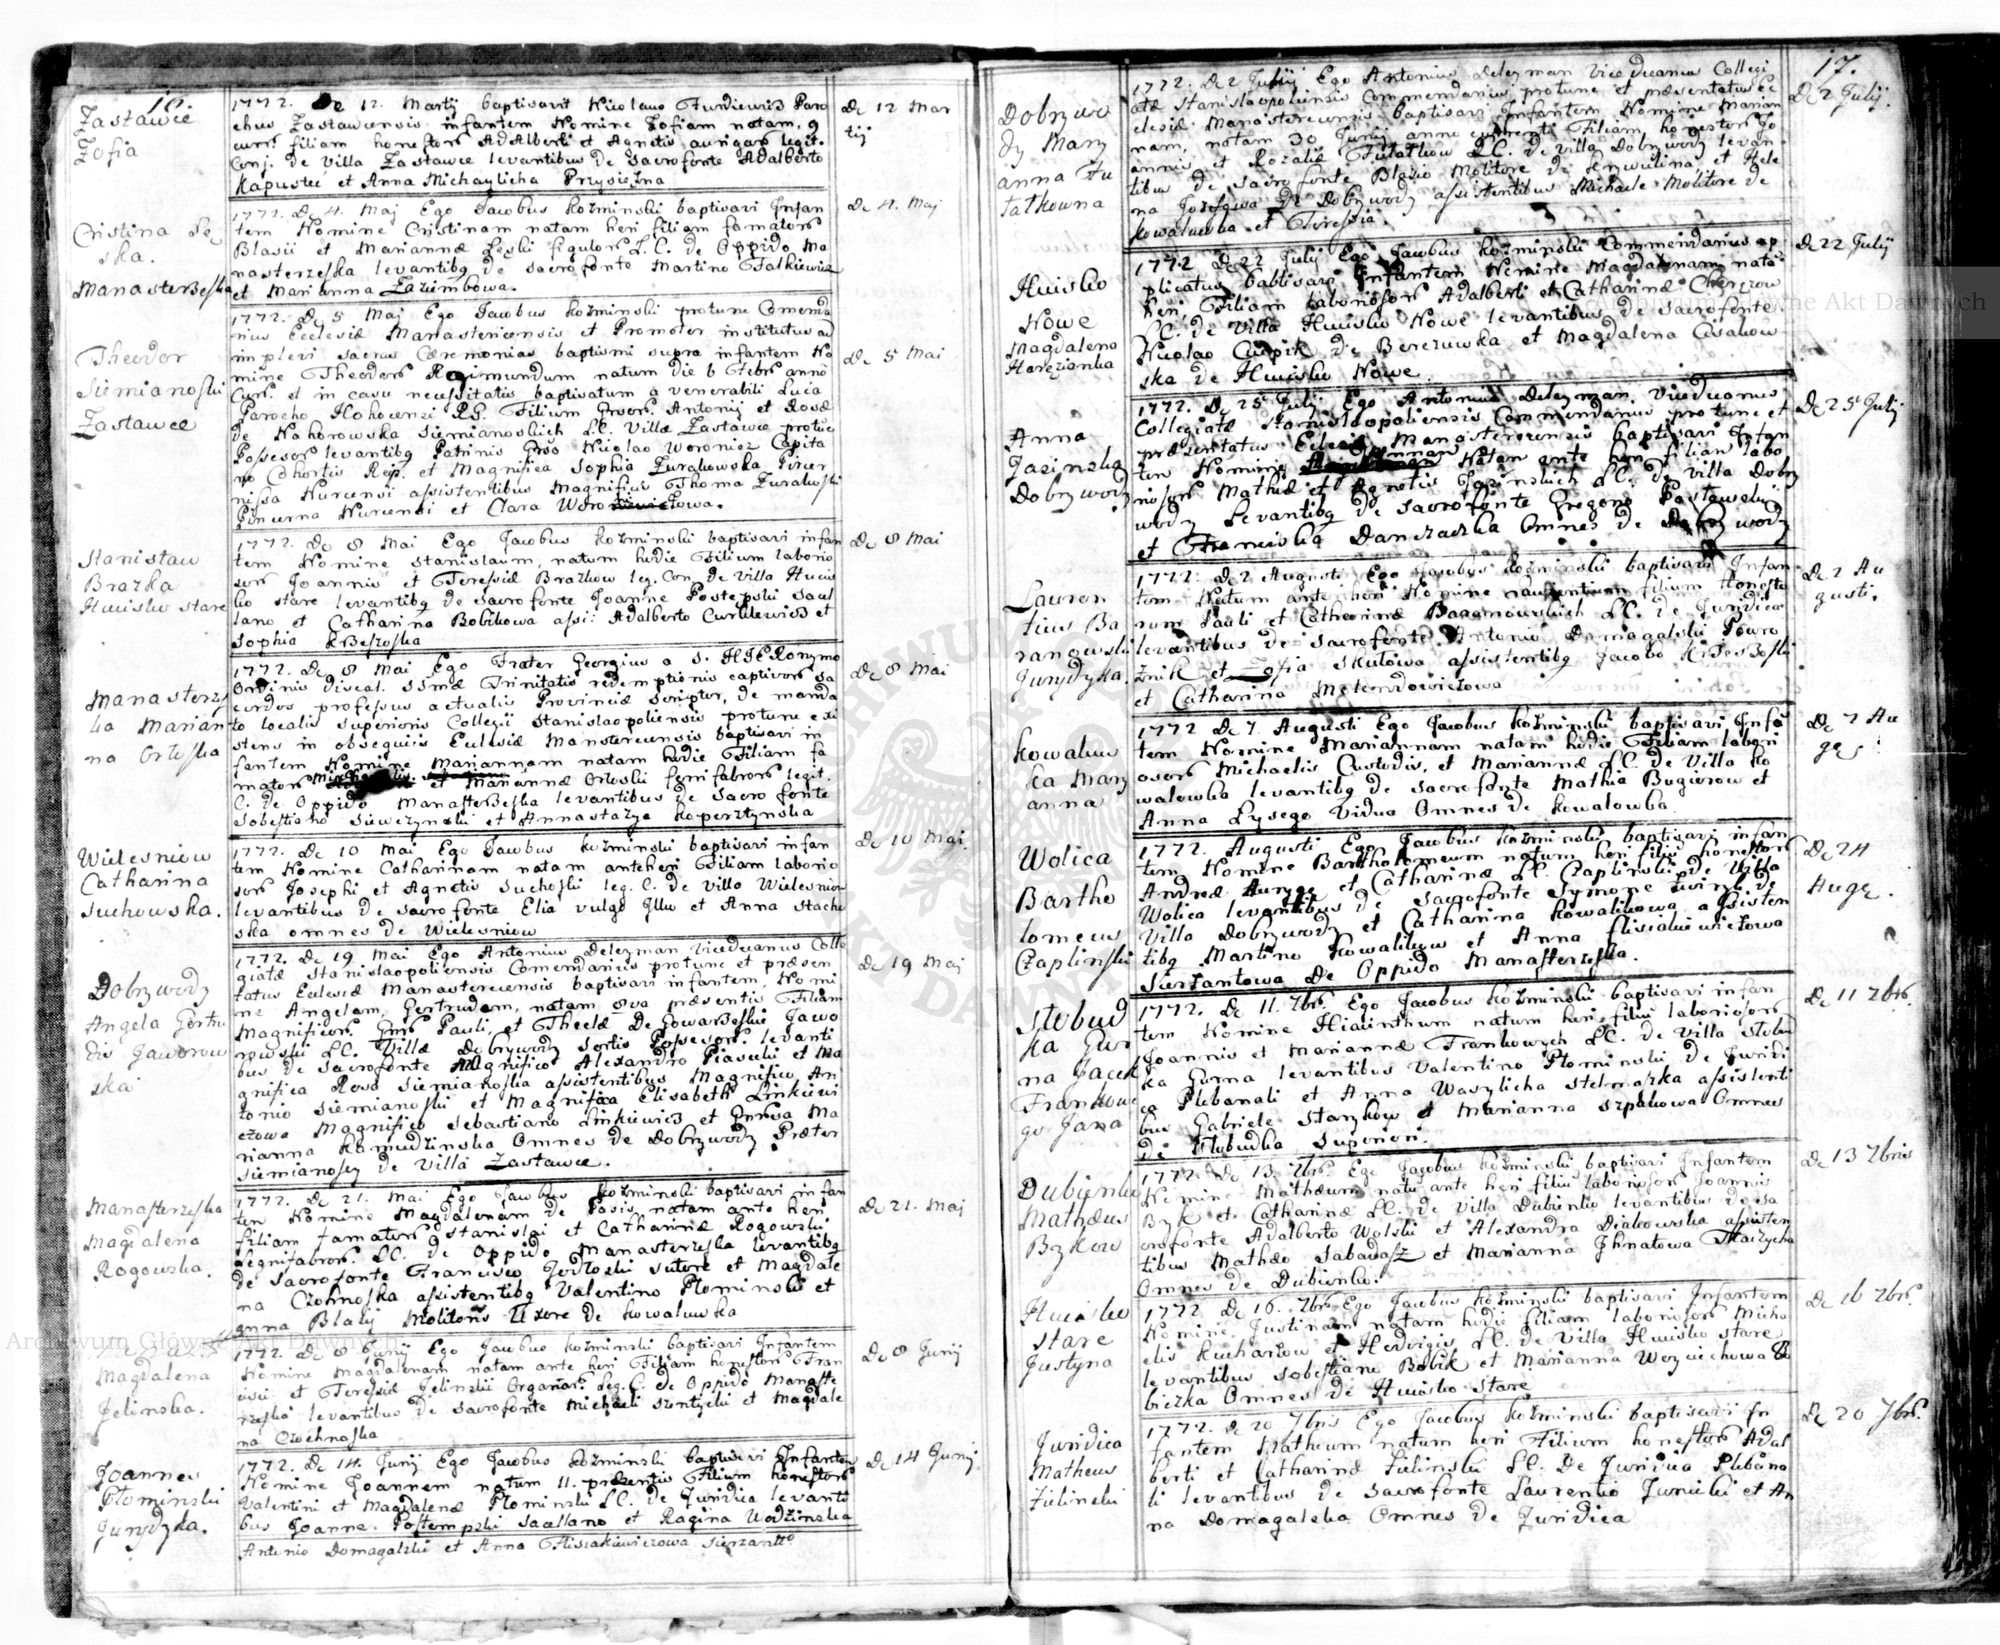 16.
Zastawce
Zofia
1772. De 12. Martij baptisavit Nicolaus Gurdiewicz Paro
chus Zastawcensis infantem Nomine Zofiam natam, 9
curr: filiam honestor Adalberti et Agnetis aurigar legit.
Conj. de Villa Zastawce levantibus de Sacro fonte Adalberto
Kapusta et Anna Michaylicha Przysiężna
De 12 Mar
tij
Cristina Les
ska.
Manasterzeska
1772. De 4. Maj Ego Jacobus Koźminski baptisavi Infan
tem Nomine Cristinam natam heri filiam famatorr
Blasii et Mariannæ Leski figulorr L. C. de Oppido Ma
nasterzeska levantibq de sacro fonte Martino Falkiewicz
et Marianna Zazimbowa.
De 4. Maj
Theodor
Siemianoski
Zastawce
1772. De 5 Maj Ego Jacobus Koźminski protunc Comenda
rius Ecclesiæ Manastericensis et Promoter institutus ad
impleri sacras Cæremonias baptismi supra infantem No
mine Theodor Rajmundum natum die 6 Febr: anno
Curr. et in casu necessitatis baptisatum a venerabili Luca
Parocho Hohocensi R.G. Filium Grosorr. Antonij et Rosæ
de Nahorowska Siemianoskich L.C. Villæ Zastawce protunc
Possesor levantibq Patrinis Groso Nicolao Woronicz Capita
no Cohortis Reg. et Magnifica Sophia Zurakowska Pincer
nissa Nurcensi assistentibus Magnifius Thoma Zurakoski
Pincerna Nurcensi et Clara Woroniczowa.
De 5 Mai
Stanislaw
Brazka
Huisko stare
1772. De 8 Mai Ego Jacobus Koźminski baptisavi infan
tem Nomine Stanislaum, natum hodie Filium laborio
sorr Joannis et Teressiæ Brazkow leg. Con. de Villa Huis
ko stare levantibq de sacro fonte Joanne Postepski Sacel
lano et Catharina Bobikowa assi: Adalberto Curkiewicz et
Sophia Krzeszoska
De 8 Mai
Manasterzys
ka Marian
na Orleska
1772. De 8 Mai Ego Frater Georgius a S. HIERonymo
Ordinis Discal. SSmæ Trinitatis redemptionis captivorr Sa
cerdos professus actualis Provinciæ scriptor, de manda
to localis superioris Collegii Stanislaopoliensis protunc exi
stens in obsequiis Ecclesiæ Mansterecensis baptisavi in
fantem Nomine Mariannam natam hodie Filiam fa
mator et Mariannæ Orloski ferrifabrorr legit.
C. de Oppido Manasterzeska levantibus de Sacro fonte
Sobestiano Siewczynski et Annastazya Koperztynska
De 8 Mai
Wielesniow
Catharina
Suchowska.
1772. De 10 Mai Ego Jacobus Koźminski baptisavi infan
tem Nomine Catharinam natam anteheri Filiam laborio
sor Josephi et Agnetis Suchoski leg. C. de Villa Wielesniow
levantibus de Sacro fonte Elia vulgo Illko et Anna Stach
ska omnes de Wielesniow
De 10 Maj.
Dobrywody
Angela Gertru
dis Jaworow
ska
1772. De 19 Maj Ego Antonius Delezman Vicedecanus Colle
giatæ Stanislaopoliensis Comendarius protunc et præsen
tatus Ecclesiæ Manasterecensis baptisavi infantem, Nomi
ne Angelam, Gertrudam, natam 8va præsentis Filiam
Magnificor Gnr Pauli, et Theclæ De Gowarzeskie Jawo
rowski L.C. Villæ Dobrywody sortis Possesorr. levanti
bus de Sacro fonte Magnifico Alexandro Piasecki et Ma
gnifica Rosa Siemianoska assistentibus Magnifico An
tonio Siemianoski et Magnifica Elisabeth Linkiewi
czowa Magnifico Sebastiano Linkiewicz et Gnrosa Ma
rianna Kamudzinska Omnes de Dobrywody Præter
Siemianosky de Villa Zastawce.
De 19 Maj
Manasterzeska
Magdalena
Rogowska.
1772. De 21. Mai Ego Jacobus Koźminski baptisavi infan
tem Nomine Magdalenam de Pasis, natam ante heri
filiam famatorr Stanislai et Catharinæ Rogowski
Legnifabror. L.C. de Oppido Manasterzeska levantibq
de Sacro fonte Francisco Jodloski sutore et Magdale
na Czohnoska assistentibq Valentino Plominski et
Anna Blaky Molitoris Uxore de Kowaluwka
De 21. Maj
Magdalena
Jelinska.
1772. De 8 Junij Ego Jacobus Koźminski baptisavi Infantem
Nomine Magdalenam natam ante heri Filiam honestorr Fran
cisci et Teressiæ Jelinskii Organar. leg. C. de Oppido Manaste
rzeska levantibus de Sacro fonte Michaeli Szentycki et Magdale
na Czochnoska
De 8 Junij
Joannes
Plominski
Jurydyka.
1772. De 14. Junij Ego Jacobus Koźminski baptisavi Infantem
Nomine Joannem natum 11. præsentis Filium honestorr
Valentini et Magdalenæ Plominski L.C. de Juridica levanti
bus Joanne Postempski Sacellano et Ragina Wodzinska
Antonio Domagalski et Anna Flisiakiewiczowa Sierzantto
De 14 Junij.
17.
Dobrywo
dy Mary
anna Fu
tatkowna
1772. De 2 Julij Ego Antonius Delezman Vicedecanus Collegi
atæ Stanislaopoliensis Commendarius protunc et præsentatus Ec
clesiæ Manasterecensis baptisavi Infantem Nomine Marian
nam, natam 30 Junij anno currenti Filiam honestor Jo
annis et Rozaliæ Futatkow L.C. de Villa Dobrywody levan
tibus de Sacro fonte Blasio Molitore de Krywulina et Hele
na Jozefowa de Dobrywody assistentibus Michaele Molitore de
Kowaluwka et Teressia
De 2 Julij.
Huisko
Nowe
Magdalena
Harezianka
1772 De 22 July Ego Jacobus Koźminski Commendarius ap
plicatus babtisavi Infantem Nomine Magdalenam nata
heri, Filiam laboriosor Adalberti et Catharinæ Cherezow
L.C. de Villa Huisko Nowe levantibus de Sacro fonte
Nicolao Cwpik de Berezuwka et Magdalena Cisakow
ska de Huisko Nowe.
De 22 Julij
Anna
Jasinska
Dobrywody
1772. De 25 Julij Ego Antonius Delezman Vicedecanus
Collegiatæ Stanislaopoliensis Commendarius protunc et
præsentatus Ecclesiæ Manasterecensis baptisavi Infan
tem Nomine Annam Natam ante heri filiam labo
riosor Mathiæ et Agnetis Jasinskich L.C. de Villa Dobry
wody Levantibq de Sacro fonte Gregorio Pastowski
et Franciska Danczaczka Omnes de Dobrywody
De 25 Julij
Lauren
tius Ba
ranowski
Jurydyka.
1772. De 2 Augusti Ego Jacobus Koźminski baptisavi Infan
tem Natum ante heri Nomine Laurentium filium Honesto
rum Pauli et Catherinæ Baranowskich L.C. de Juridica
levantibus de Sacro fonte Antonio Damagalski Powro
znik et Zofia Skutowa assistentibq Jacobo Krzeszoski
et Catharina Melendowiczowa
De 2 Au
gusti.
Kowaluw
ka Mary
anna
1772 De 7. Augusti Ego Jacobus Koźminski baptisavi Infa
tem Nomine Mariannam natam hodie Filiam labori
osorr Michaelis Custodis, et Mariannæ L.C. de Villa Ko
walowka levantibq de Sacro fonte Mathia Buzierow et
Anna Lysego Vidua Omnes de Kowalowka
De 7 Au
gq
Wolica
Bartho
lomeus
Czaplinski
1772. Augusti Ego Jacobus Koźminski baptisavi infan
tem Nomine Bartholomeum natum heri filii honestorr
Andreæ Aurygæ et Catharinæ L.C. Czaplinski de Villa
Wolica levantibus de Sacrofonte Symone de
Villa Dobrywody et Catharina Kowalikowa assisten
tibq Martino Kowalikow et Anna Flisiakiewiczowa
Sierzantowa De Oppido Manasterzeska.
De 24
Augq.
Slobud
ka Gur
na Jacek
Frankow
go Jana
1772. De 11. 7brs. Ego Jacobus Koźminski baptisavi infan
tem Nomine Hiacinthum natum heri filiu laboriosorr
Joannis et Mariannæ Frankowych L.C. de Villa Slobu
ka Gurna levantibus Valentino Plominski de Juridi
ca Plebanali et Anna Wasylicha Stelmazka assistenti
bus Gabriele Starzkow et Marianna Szpakowa Omnes
de Slobudka Superiori.
De 11 7brs.
Dubienko
Mathæus
Bzykow
1772. De 13. 7brs. Ego Jacobus Koźminski baptisavi Infantem
Nomine Mathæum natu ante heri filiu laboriosorr Joannis
Bzyk et Catharinæ L.C. de Villa Dubienko levantibus de Sa
crofonte Adalberto Wolski et Alexandra Diakowska assisten
tibus Mathæo Sabadasz et Marianna Ihnatowa Tkaczycha
Omnes de Dubienko.
De 13 7bris
Huisko
Stare
Justyna
1772. De 16. 7brs. Ego Jacobus Koźminski baptisavi Infantem
Nomine Justinam natam hodie filiam laboriosorr Micha
elis Kucharzow et Hedvigis L.C. de Villa Huisko stare
levantibus Sobestiano Bobik et Marianna Woyciechowa
biczka Omnes de Huisko Stare
De 16 7brs.
Juridica
Matheus
Zielinski
1772. De 20 7bris Ego Jacobus Koźminski baptisavi In
fantem Matheum natum heri Filium honestorr Adal
berti et Catharinæ Zielinski L.C. De Juridica Plebana
li levantibus de Sacro fonte Laurentio Junicki et An
na Domagalska Omnes de Juridica
De 20 7brs.
Archiwum Główne Akt Dawnych
Archiwum Główne Akt Dawnych